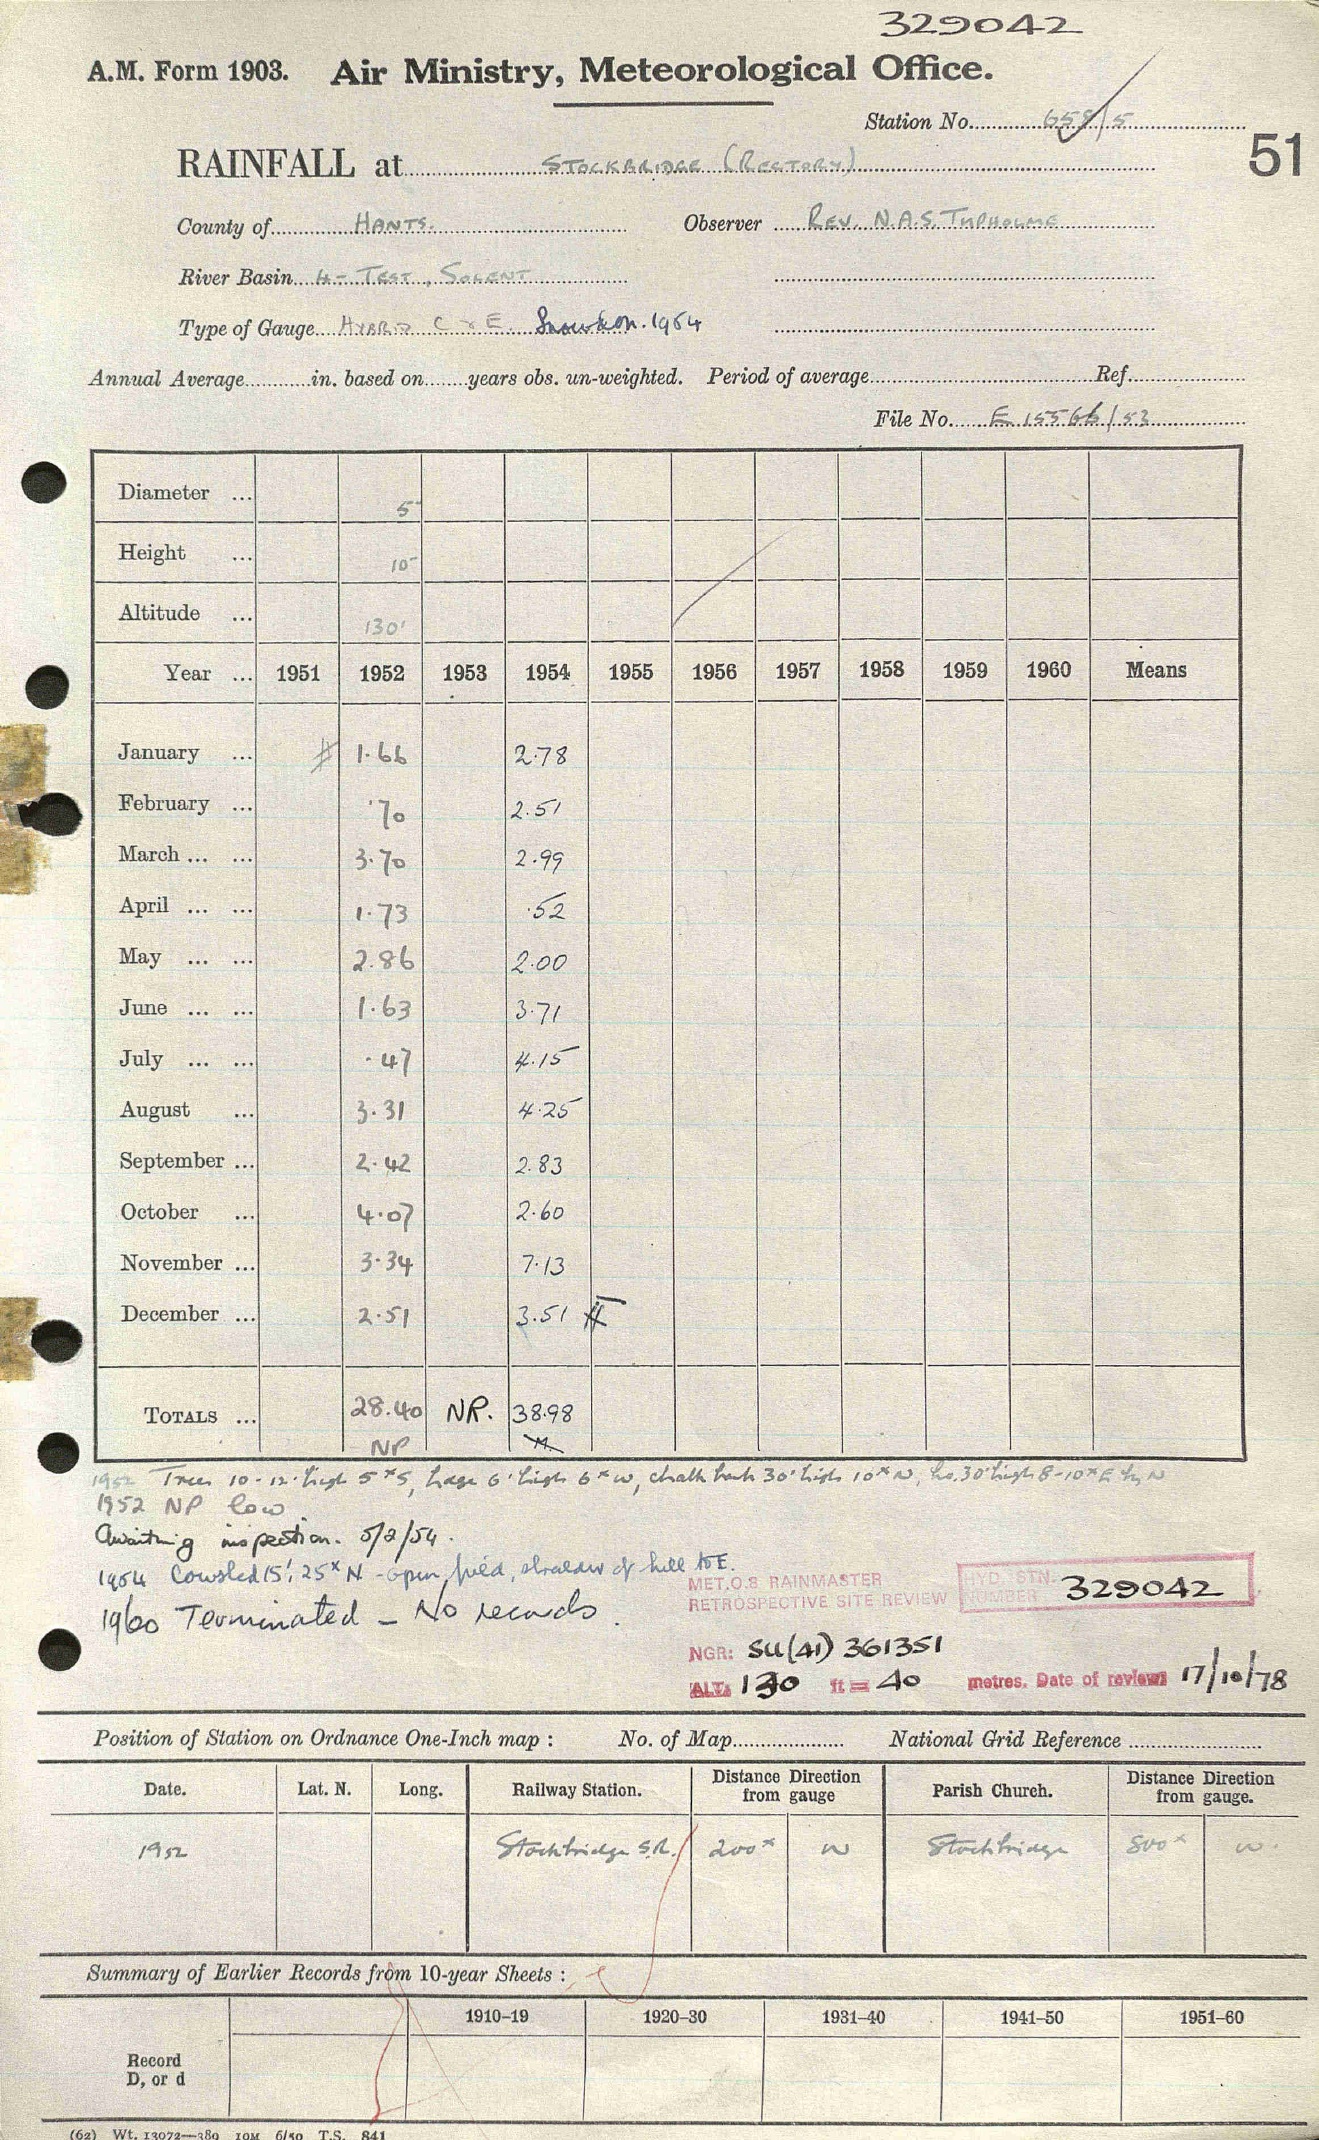 329042
A.M. Form 1903. Air Ministry, Meteorological Office.
Station No. 658/5
51
RAINFALL at STOCKBRIDGE (RECTORY)
County of HANTS. Observer REV. N.A.S. TUPHOLME
River Basin 4- TEST, SOLENT
Type of Gauge HYBRID C & E. Snowdon. 1954
Annual Average in. based on years obs. un-weighted. Period of average Ref.
File No. E 15566/53
Diameter ... 5
Height ... 10
Altitude ... 130'
Year ... 1951 1952 1953 1954 1955 1956 1957 1958 1959 1960 Means
January ... 1.66 2.78
February ... .70 2.51
March ... ... 3.70 2.99
April ... ... 1.73 .52
May ... ... 2.86 2.00
June ... ... 1.63 3.71
July ... ... .47 4.15
August ... 3.31 4.25
September ... 2.42 2.83
October ... 4.07 2.60
November ... 3.34 7.13
December ... 2.51 3.51
TOTALS ... 28.40 NR. 38.98
NP
1952 Trees 10-12' high 5ˣ S, hedge 6' high 6ˣ W, chalk bank 30' high 10ˣ N, ho. 30' high 8-10ˣ E by N
1952 NP low
Awaiting inspection. 5/2/54.
1954 Cowshed 15', 25ˣ N - open field, shoulder of hill to E.
1960 Terminated - No records.
MET.O.8 RAINMASTER
RETROSPECTIVE SITE REVIEW
HYD. STN.
NUMBER 329042
NGR: SU(41) 361351
ALT: 130 ft = 40 metres. Date of review: 17/10/78
Position of Station on Ordnance One-Inch map : No. of Map National Grid Reference
Date. Lat. N. Long. Railway Station. Distance Direction from gauge Parish Church. Distance Direction from gauge.
1952 Stockbridge S.R. 200ˣ W Stockbridge 800ˣ W.
Summary of Earlier Records from 10-year Sheets :
1910–19 1920–30 1931–40 1941–50 1951–60
Record
D, or d
(62) Wt. 13072—389 10M 6/50 T.S. 841